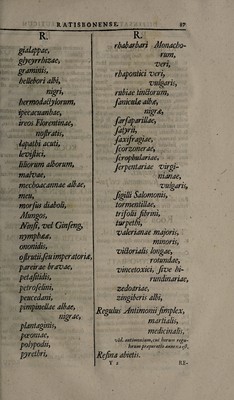 RATISBONENSE. 87
R.
gialappae,
glycyrrhizae,
graminis,
hellebori albi,
nigri,
hermodactylorum,
ipecacuanhae,
ireos Florentinae,
nostratis,
lapathi acuti,
levistici,
liliorum alborum,
malvae,
mechoacannae albae,
meu,
morsus diaboli,
Mungos,
Ninsi, vel Ginseng,
nymphaeae,
ononidis,
ostrutii, seu imperatoriae,
pareirae bravae,
petasitidis,
petroselini,
peucedani,
pimpinellae albae,
nigrae,
plantaginis,
paeoniae,
polypodii,
pyrethri,
R.
rhabarbari Monacho-
rum,
veri,
rhapontici veri,
vulgaris,
rubiae tinctorum,
saniculae albae,
nigrae,
sarsaparillae,
satyrii,
saxifragiae,
scorzonerae,
scrophulariae,
serpentariae virgi-
nianae,
vulgaris,
sigilli Salomonis,
tormentillae,
trifolii fibrini,
turpethi,
valerianae majoris,
minoris,
victorialis longae,
rotundae,
vincetoxici, sive hi-
rundinariae,
zedoariae,
zingiberis albi,
Regulus Antimonii simplex,
martialis,
medicinalis,
vid. antimonium, cui horum regu-
lorum praeparatio annexa est,
Resina abietis.
Y 2 RE-